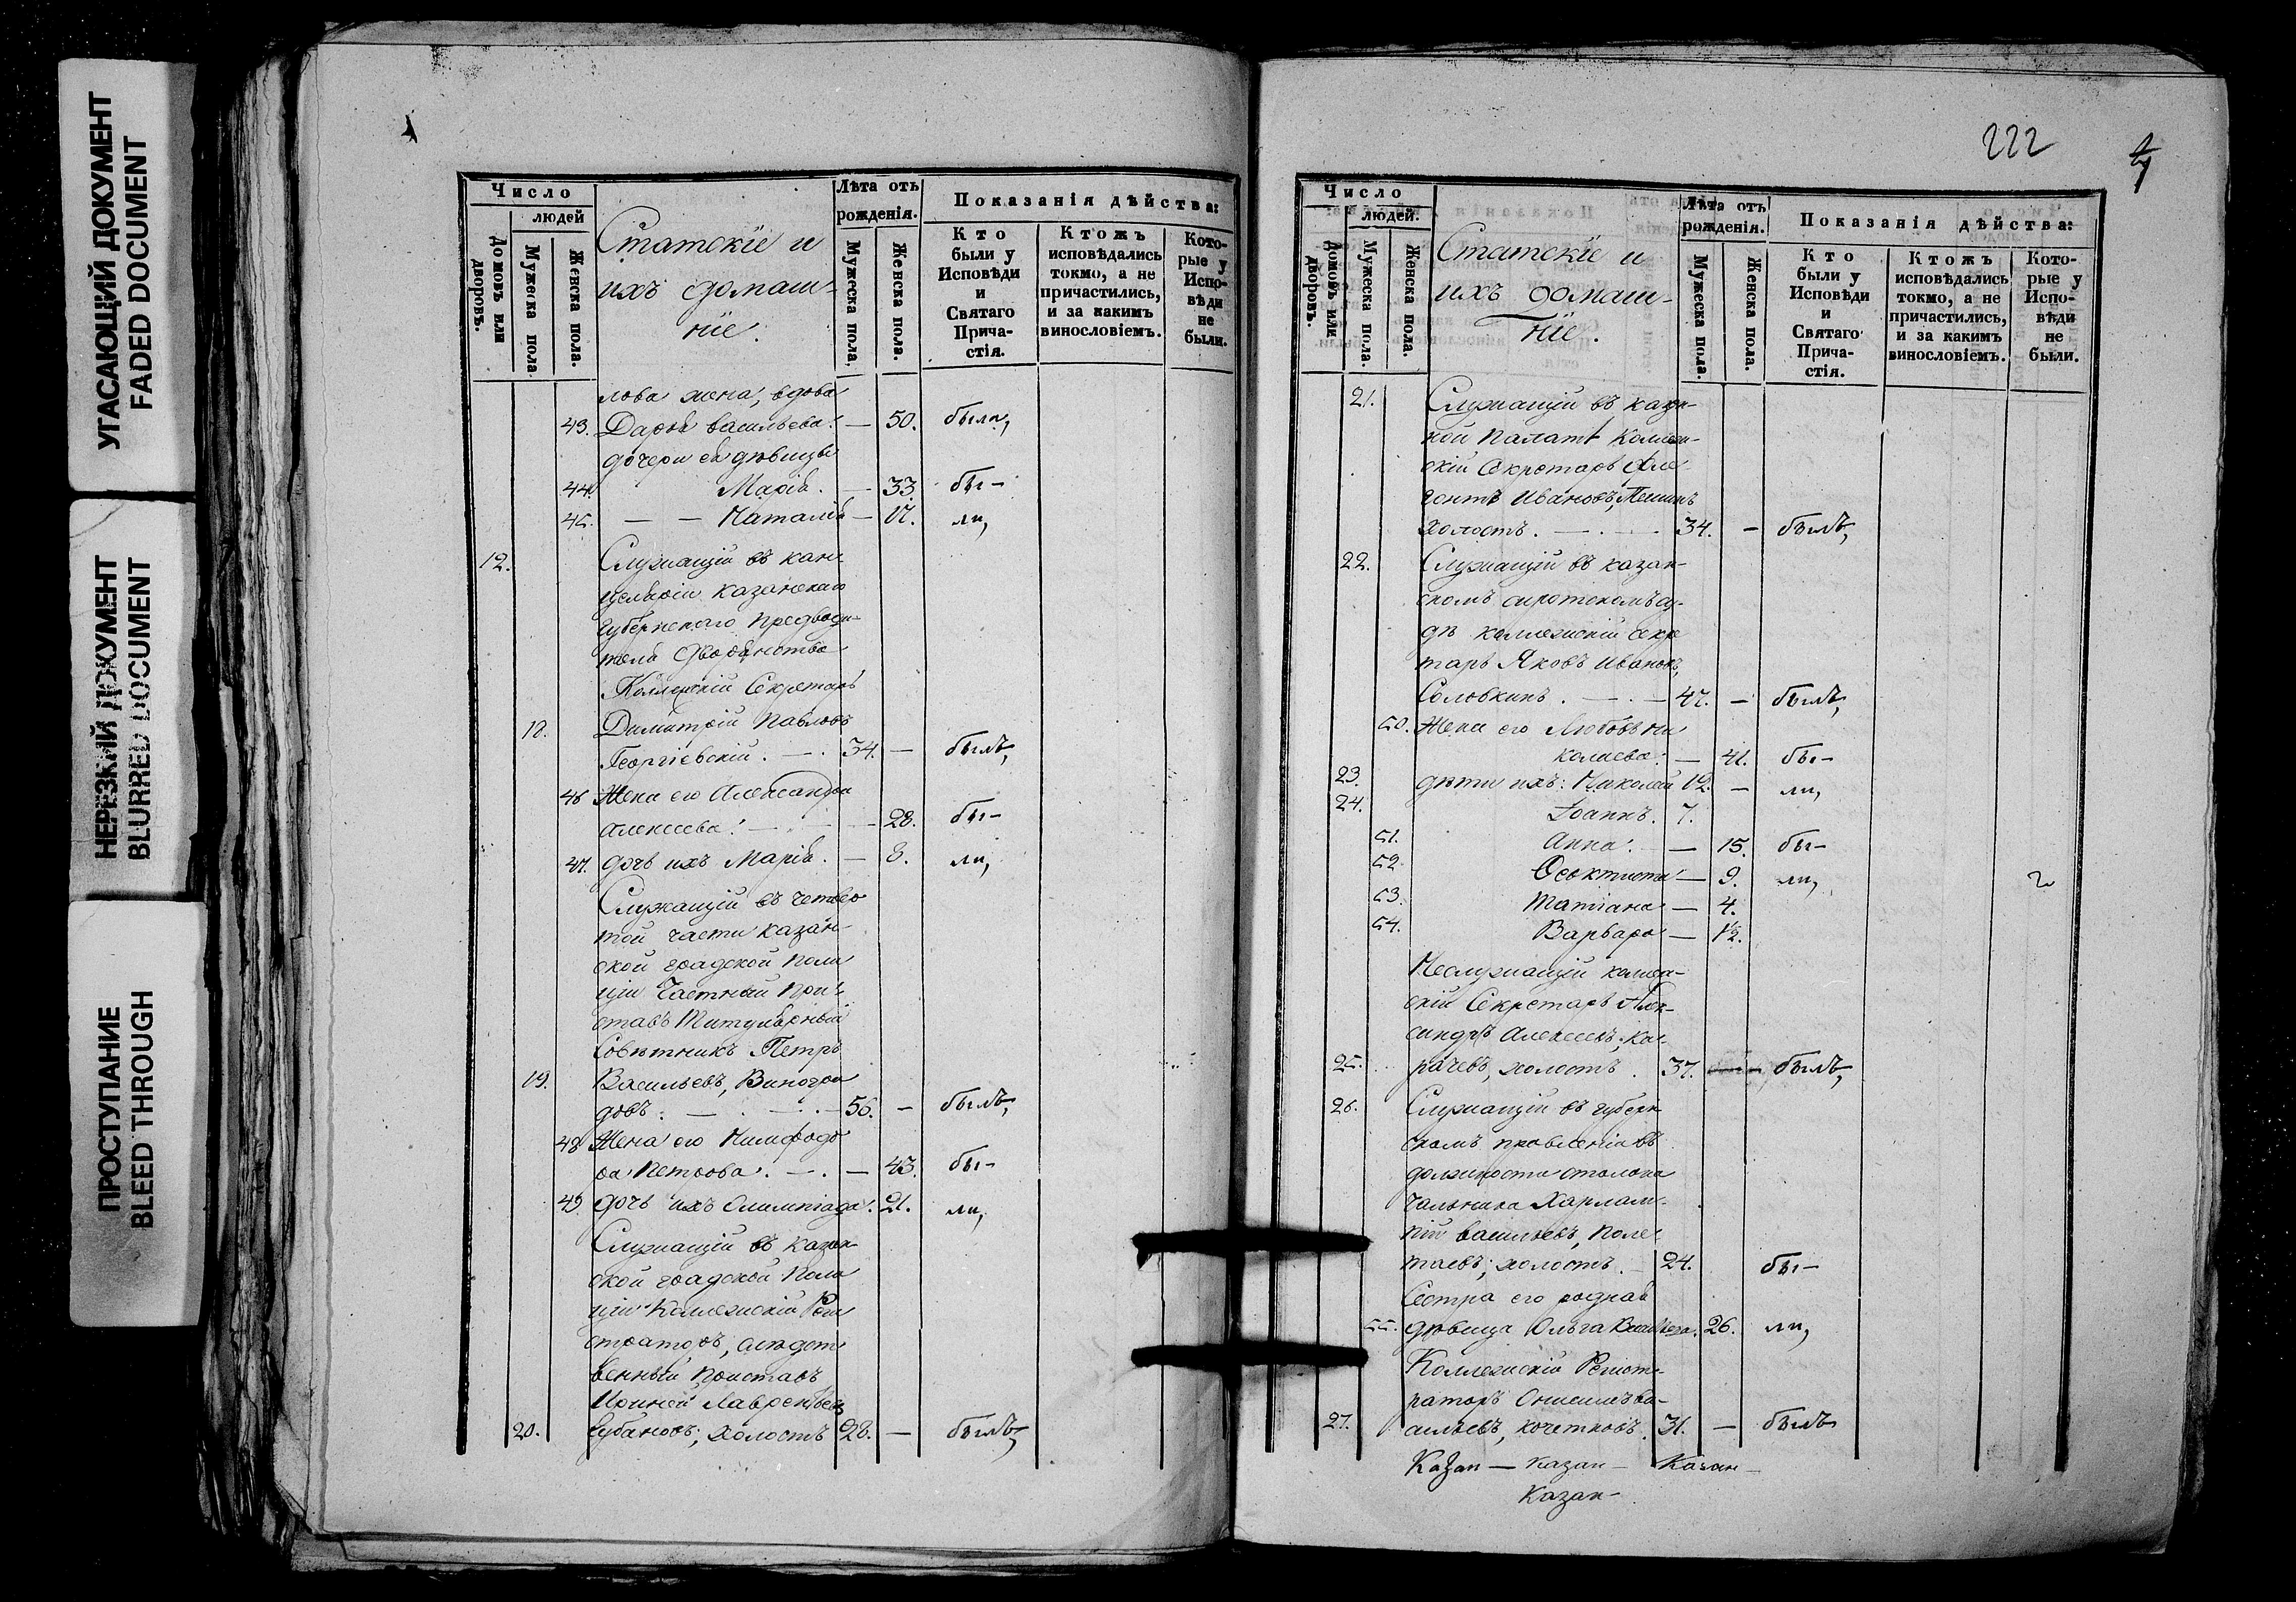 УГАСАЮЩИЙ ДОКУМЕНТ
FADED DOCUMENT
НЕРЕЗКИЙ ДОКУМЕНТ
BLURRED DOCUMENT
ПРОСТУПАНИЕ
BLEED THROUGH
Число
людей
Домовъ или дворовъ.
Мужеска пола.
Женска пола.
Статскіе и
ихъ домаш-
ніе.
Лѣта отъ
рожденія.
Мужеска пола.
Женска пола.
Показанія дѣйства:
Кто были у Исповѣди и Святаго Прича-стія.
Ктожъ исповѣдались токмо, а не причастились, и за какимъ винословіемъ.
Кото-рые у Испо-вѣди не были.
лова жена, вдова
43. Дарья Васильева. — 50. была,
дочери ея дѣвицы
44. Марія. — 33. бы-
45. — — Наталія — 17. ли,
12. Служащій въ кан-
целяріи Казанскаго
Губернскаго Предводи-
теля Дворянства
Коллежскій Секретарь
18. Димитрій Павловъ
Георгіевскій. — . 34. — былъ,
46 Жена его Александра
Алексѣева. — 28. бы-
47. дочь ихъ Марія. — 8. ли,
Служащій въ четвер
той части Казан-
ской градской Поли
ціи Частный При-
ставъ Титулярный
Совѣтникъ Петръ
19. Васильевъ, Виногра
довъ. — . — 56. — былъ,
48 Жена его Нимфодо
ра Петрова. — . — 43. бы-
49 дочь ихъ Олимпіада. 21. ли,
Служащій въ Казан-
ской градской Поли
ціи Коллежскій Реги
страторъ, слѣдст
венный приставъ
Ириней Лаврентьевъ
20. Губановъ, холостъ 28. — былъ,
222
Число
людей.
Домовъ или дворовъ.
Мужеска пола.
Женска пола.
Статскіе и
ихъ домаш-
ніе.
Лѣта отъ
рожденія.
Мужеска пола.
Женска пола.
Показанія дѣйства:
Кто были у Исповѣди и Святаго Прича-стія.
Ктожъ исповѣдались токмо, а не причастились, и за какимъ винословіемъ.
Кото-рые у Испо-вѣди не были.
21. Служащій въ казен-
ной Палатѣ Коллеж-
скій Секретарь
Ивановъ,
холостъ. — . — 34. — былъ,
22. Служащій въ казан-
скомъ сиротскомъ су-
дѣ коллежскій секре
тарь Яковъ Ивановъ,
Соловкинъ. — . — 47. — былъ,
50. Жена его Любовь Ни
колаева. — 41. бы-
23. дѣти ихъ: Николай 12. — ли,
24. Іоаннъ. 7.
51. Анна. — 15. бы-
52. Ѳеоктиста — 9. ли,
53. Татіана — 4.
54. Варвара — 1/2.
Неслужащій коллеж-
скій Секретарь Алек-
сандръ Алексѣевъ, Ка-
25. рачевъ, холостъ. 37. былъ,
26. Служащій въ губерн
скомъ правленіи въ
должности столона
чальника Харлам-
пій Васильевъ, Поле-
таевъ, холостъ. — 24. бы-
Сестра его родная
55. дѣвица Ольга Васильева. 26. ли,
Коллежскій Регист-
раторъ Онисимъ Ва-
27. сильевъ, Кочетковъ. 31. — былъ
Казан — Казан — Казан —
Казан —